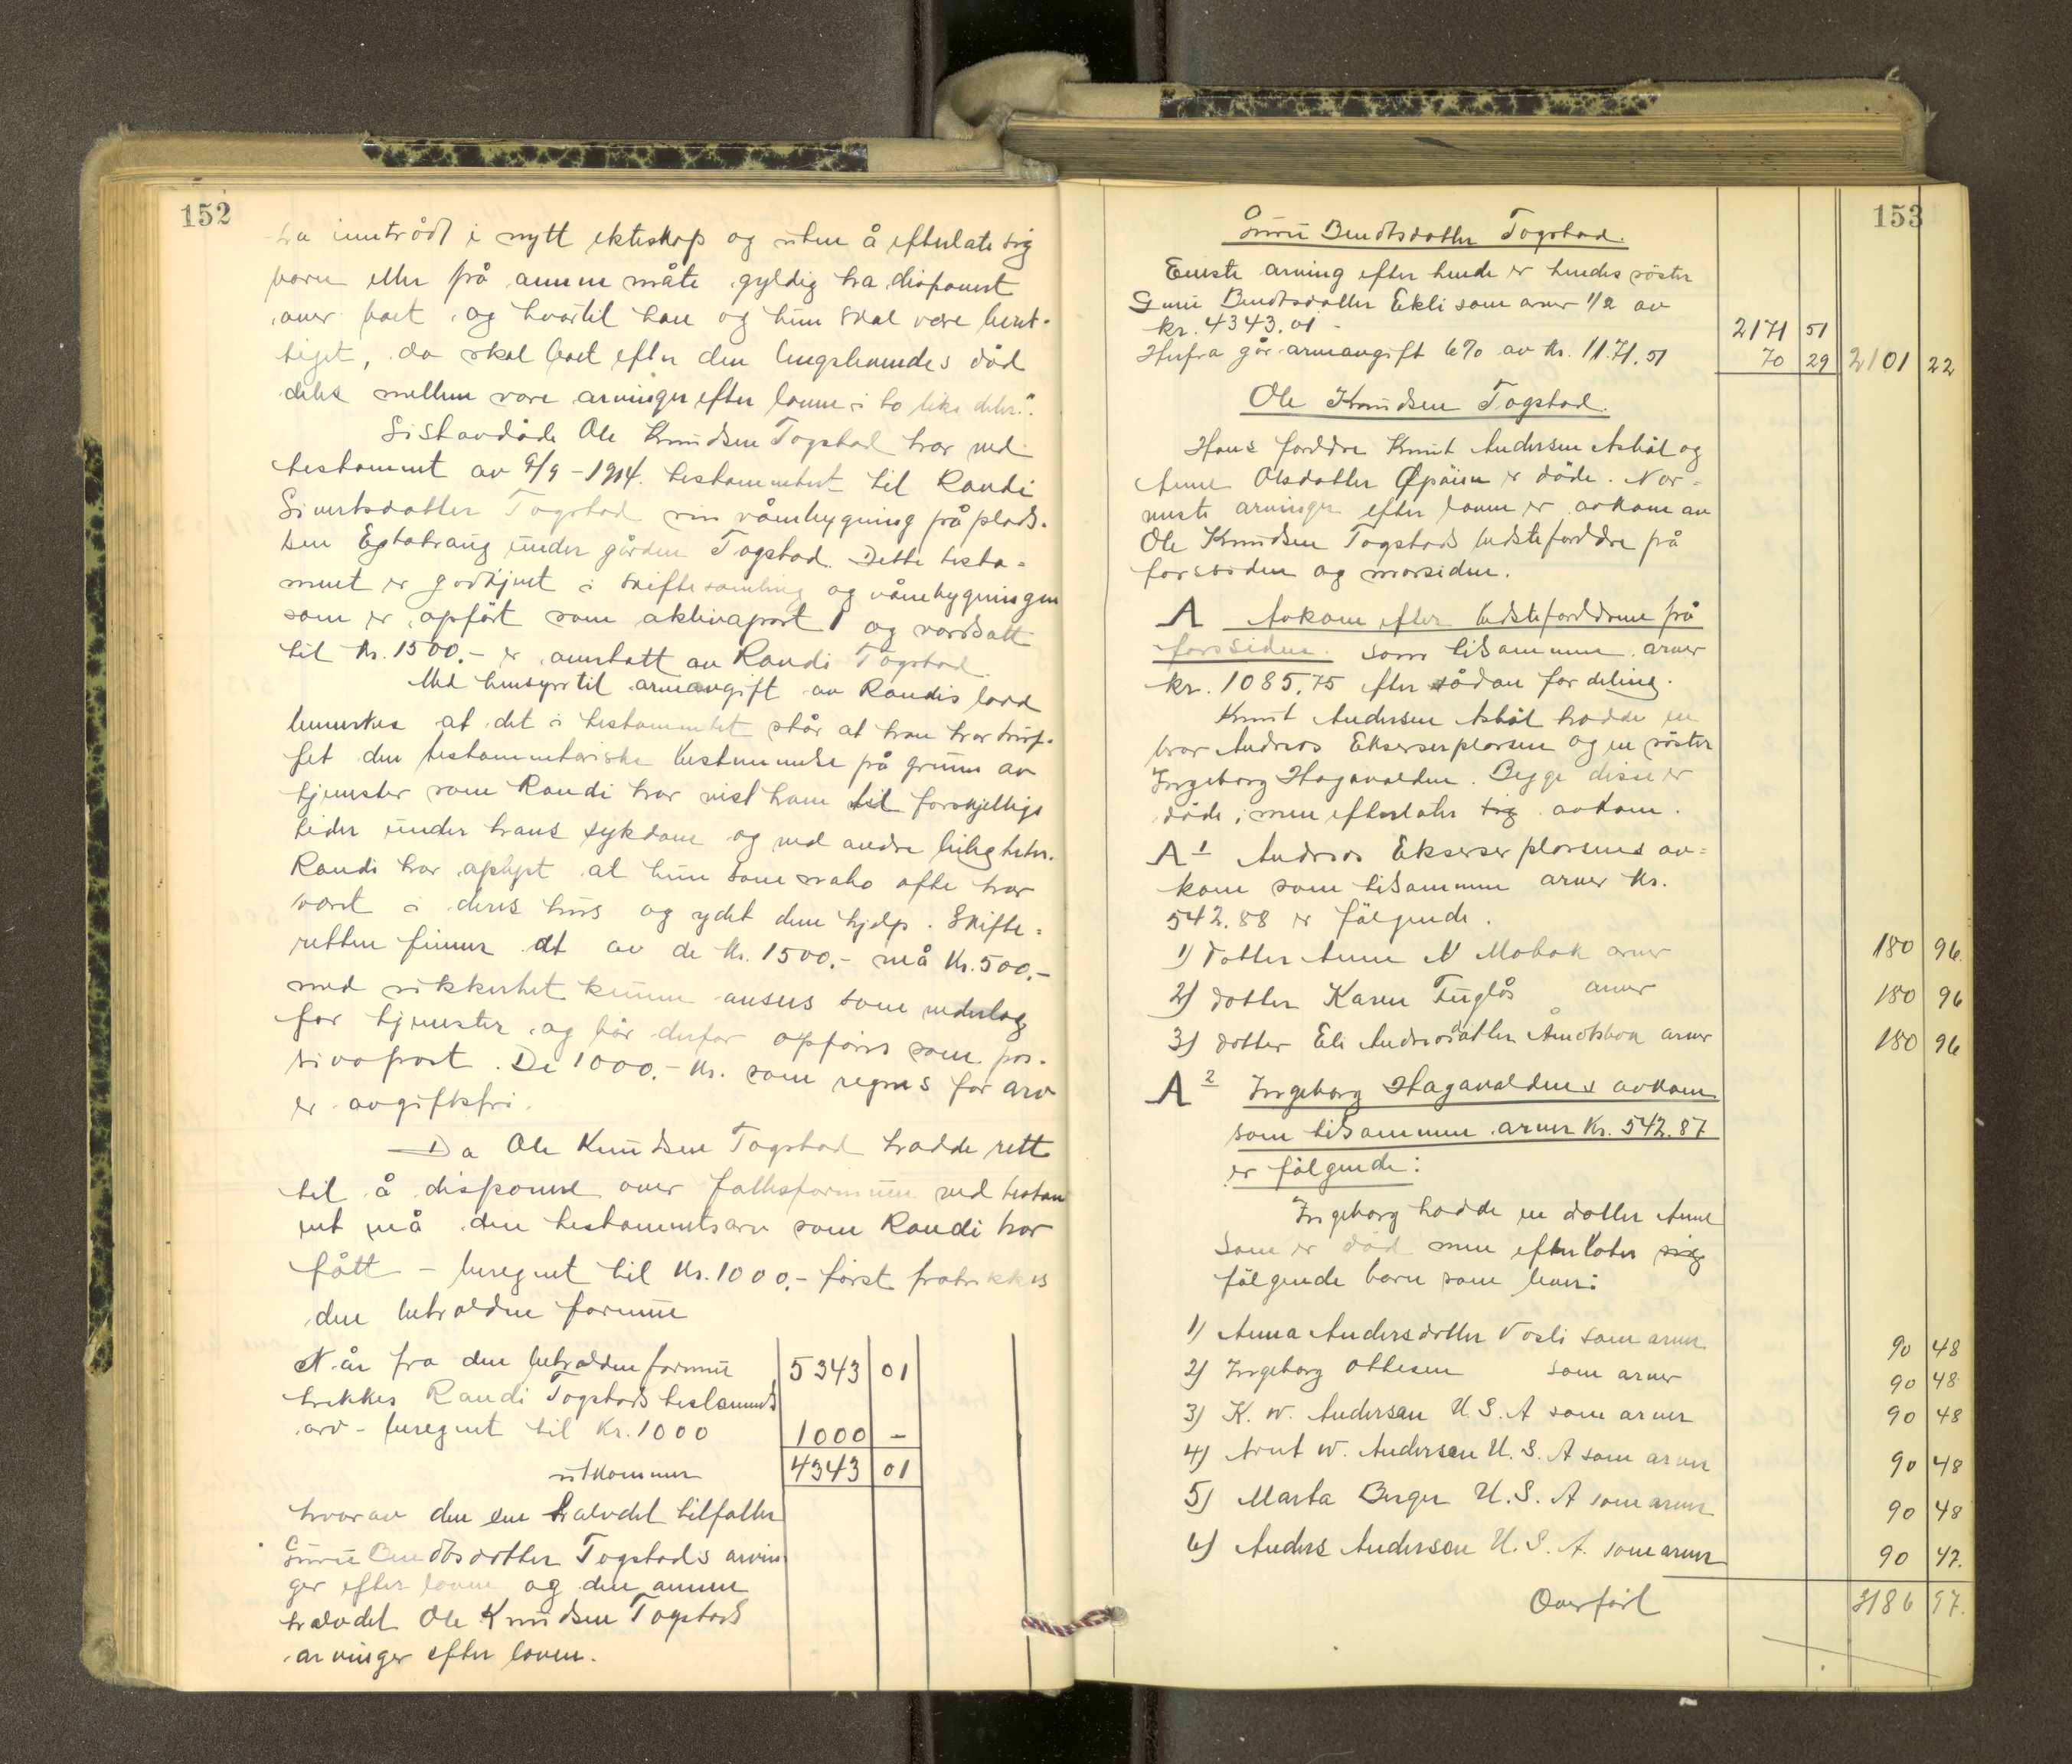 152
ha inntrådt i nytt ekteskap og uten å efterlate sig
barn eller på annen måte gyldig ha disponert
over boet, og hvortil han og hun skal være beret-
tiget, da skal boet efter den lengstlevendes død
deles mellem vore arvinger efter loven i to like deler."
Sistavdøde Ole Knudsen Togstad har ved
testamment av 9/9-1914. testammentert til Randi
Sivertsdatter Togstad sin våنebygning på plads-
sen Egtatraug under gården Togstad. Dette testa-
ment er godkjent i skiftesamling og våنebygningen
som er opført som aktivapost 1 og verdsatt
til kr. 1500.- er overtatt av Randi Togstad
Med hensyn til arveavgift av Randis lodd
bemerkes at det i testammentet står at han har truf-
fet den testammentariske bestemmelse på grunn av
tjenester som Randi har vist ham til forskjellige
tider under hans sykdom og ved andre leiligheter.
Randi har oplyst at hun som nabo ofte har
vært i deres hus og ydet dem hjelp. Skifte-
retten finner at av de kr. 1500.- må kr. 500.-
med sikkerhet kunne ansees som vederlag
for tjenester og bør derfor opføres som pas-
sivapost. De 1000.- kr. som regnes for arv
er avgiftsfri.
Da Ole Knudsen Togstad hadde rett
til å disponere over fellesformuen ved testam
ent må den testammentsarv som Randi har
fått - beregnet til kr. 1000.- først fratrekkes
den beholdne formue
Når fra den beholdne formue 5343 01
trekkes Randi Togstads testaments
arv - beregnet til kr. 1000 1000 -
utkommer 4343 01
hvorav den ene halvdel tilfaller
Guru Bendtsdatter Togstads arvin-
ger efter loven og den annen
halvdel Ole Knudsen Togstads
arvinger efter loven.
153
Guru Bendtsdatter Togstad.
Eneste arving efter hende er hendes søster
Guru Bendtsdatter Ekli som arver 1/2 av
kr. 4343.01 - 2171 51
Herfra går arveavgift 6% av kr. 1171.51 70 29 2101 22
Ole Knudsen Togstad.
Hans foreldre Knut Andersen Asbøl og
Anne Olsdatter er døde. Nær-
meste arvinger efter loven er avkom av
Ole Knudsen Togstads bedsteforeldre på
farssiden og morsiden.
A Avkom efter bedsteforeldrene på
farssiden. som tilsammen arver
kr. 1085.75 efter sådan fordeling.
Knut Andersen Asbøl hadde en
bror Andreas Ekserserplassen og en søster
Ingeborg Hagavolden. Begge disse er
døde, men efterlater sig avkom.
A1 Andreas Ekserserplassens av-
kom som tilsammen arver kr.
542.88 er følgende.
1) Datter Anne N Mobak arver 180 96.
2) datter Karen Fuglås arver 180 96
3) datter Eli Andreasdatter Åmotsbak arver 180 96
A2 Ingeborg Hagavoldens avkom
som tilsammen arver kr. 542.87
er følgende:
Ingeborg hadde en datter Anne
som er død men efterlater sig
følgende barn som lever:
1) Anna Andersdatter Vosli som arver 90 48
2) Ingeborg Ottesen som arver 90 48
3) K. W. Andersen U.S.A som arver 90 48
4) Arnt W. Andersen U.S.A som arver 90 48
5) Marta Berger U.S.A som arver 90 48
6) Anders Anderson U.S.A. som arver 90 47.
Overført 3186 97.